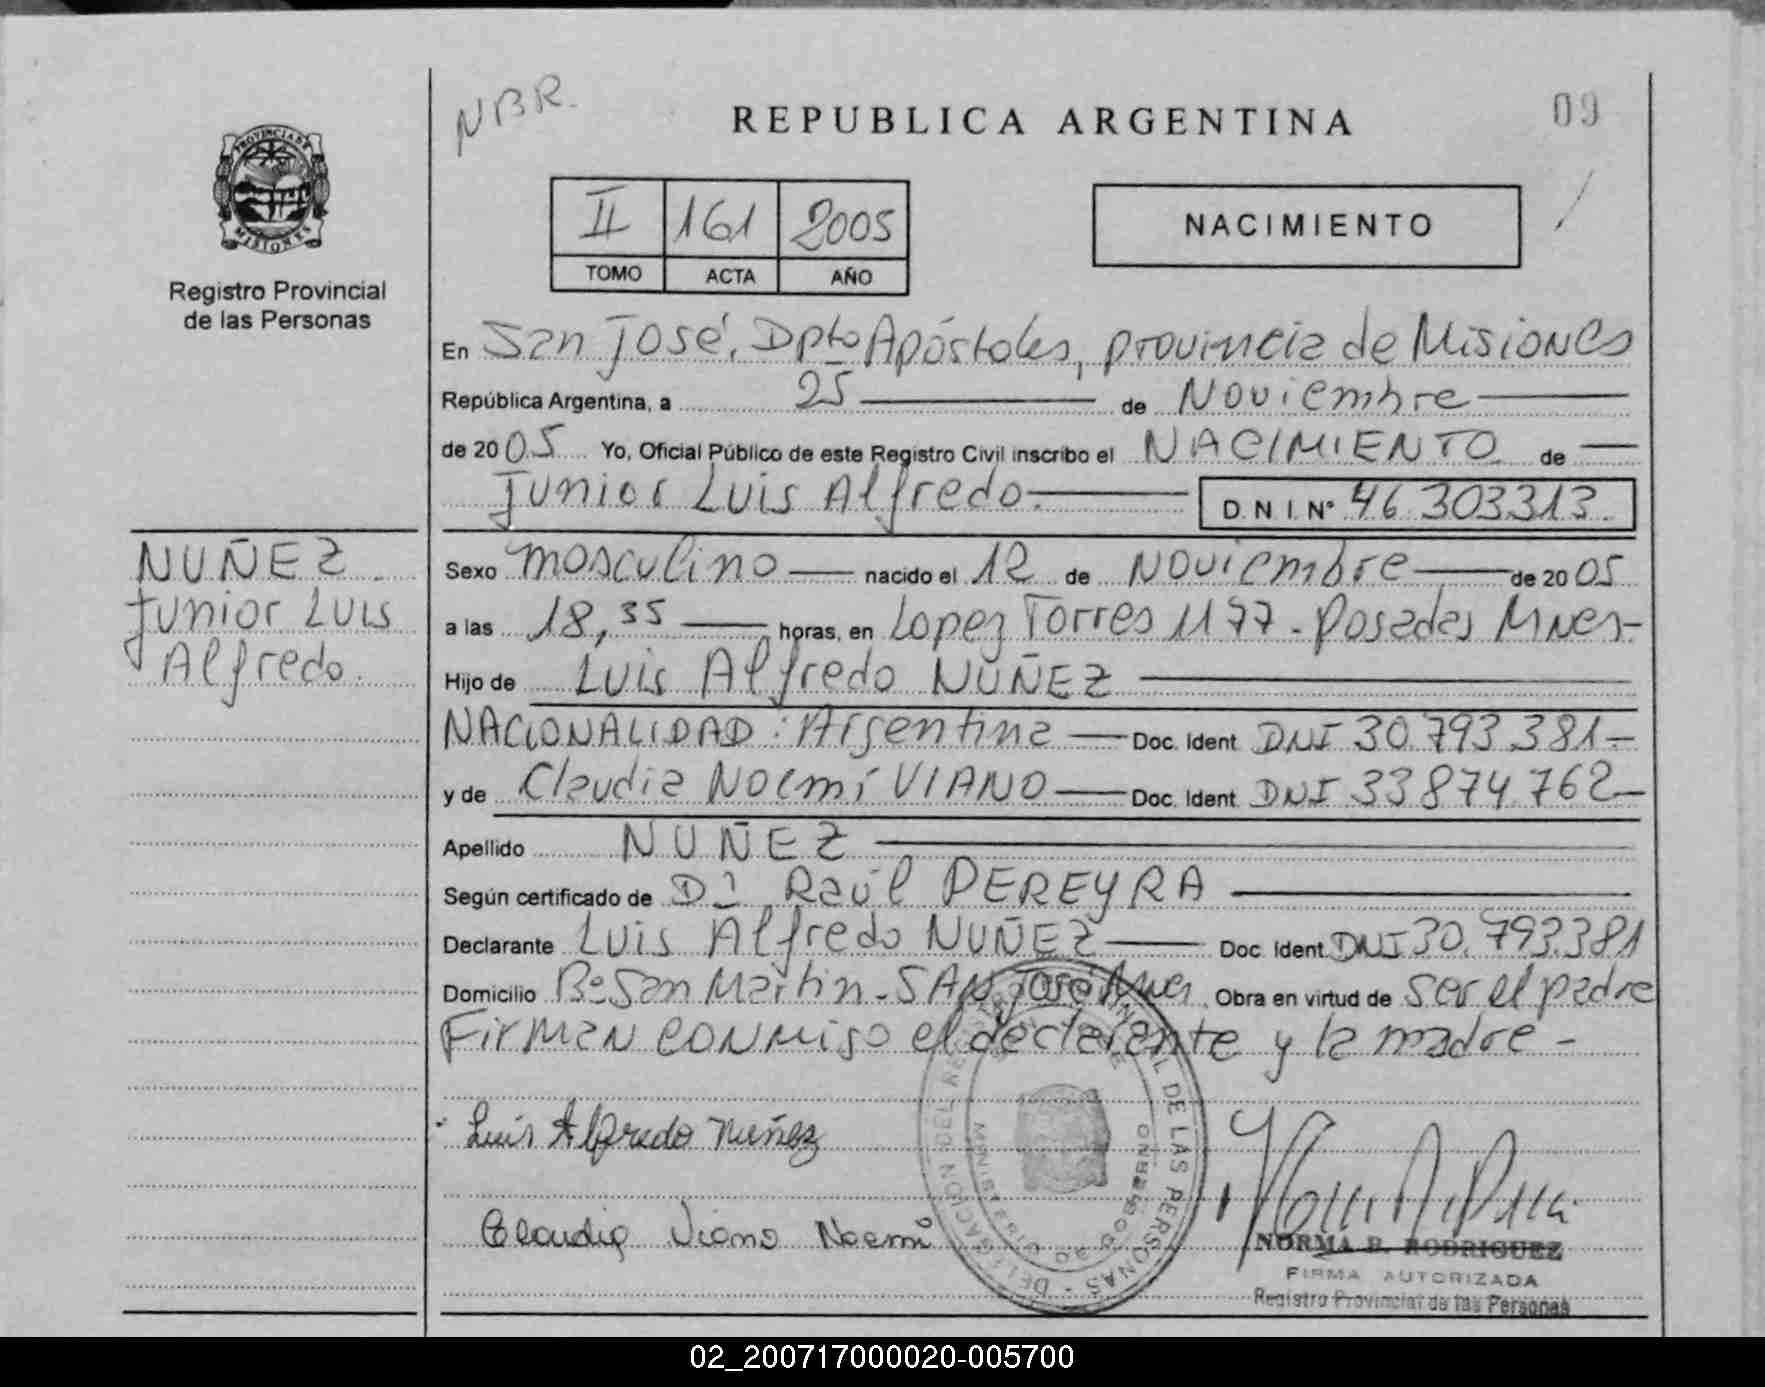 NBR.
REPUBLICA ARGENTINA
09
PROVINCIA DE
MISIONES
Registro Provincial
de las Personas
II 161 2005
TOMO ACTA AÑO
NACIMIENTO
En San José, Dpto Apóstoles, provincia de Misiones
República Argentina, a 25 de Noviembre
de 2005 Yo, Oficial Público de este Registro Civil inscribo el NACIMIENTO de
Junior Luis Alfredo. D.N.I.N° 46.303.313.
NUÑEZ
Junior Luis
Alfredo.
Sexo masculino nacido el 12 de Noviembre de 2005
a las 18,35 horas, en Lopez Torres 1177 - Posadas Mnes-
Hijo de Luis Alfredo NUÑEZ
NACIONALIDAD: Argentina Doc. Ident. DNI 30.793.381-
y de Claudia Noemí VIANO Doc. Ident. DNI 33.874.762-
Apellido NUÑEZ
Según certificado de Dr. Raúl PEREYRA
Declarante Luis Alfredo NUÑEZ Doc. Ident. DNI 30.793.381
Domicilio B° San Martin - SAN José Mnes. Obra en virtud de ser el padre
Firman conmigo el declarante y la madre -
Luis Alfredo Nuñez
Claudia Viano Noemi
DELEGACION DEL REGISTRO PROVINCIAL DE LAS PERSONAS
MINISTERIO DE GOBIERNO
NORMA B. RODRIGUEZ
FIRMA AUTORIZADA
Registro Provincial de las Personas
02_200717000020-005700